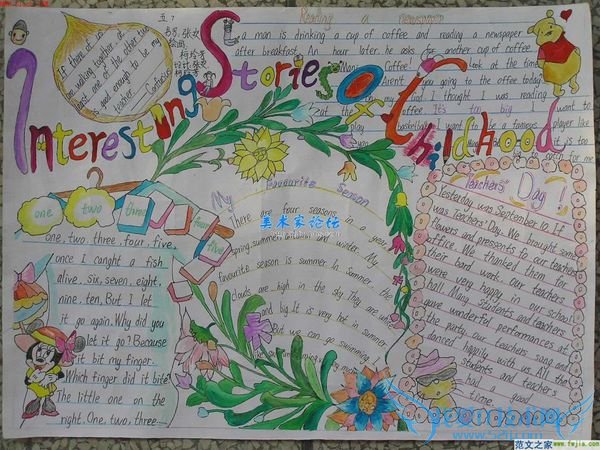 五.7
Reading a newspaper
a man is drinking a cup of coffee and reading a newspaper
after breakfast. An hour later, he asks for another cup of coffee.
Coffee! look at the time
Aren't you going to the office today
I thought I was reading
at the office. It's too big I want to
play basketball. I want to be a famous player like
it is too
for me
If there at is
me walking together at
least one of the other two
is good enough to be my
teacher. Confucius
Interesting Stories of Childhood
one two three four five
one, two, three, four, five,
once I caught a fish
alive, six, seven, eight,
nine, ten, But I let
it go again. Why did you
let it go? Because
it bit my finger.
Which finger did it bite
The little one on the
right. One, two, three
My Favourite Season
There are four seasons in a year
spring, summer, autumn and winter. My
favourite season is summer. In summer, the
clouds are high in the sky. They are white
and big. It is very hot in summer
But we can go swimming
美术家论坛
Teachers' Day!
Yesterday was September 10. It
was Teachers' Day. We brought some
flowers and presents to our teachers
office. We thanked them for
their hard work. our teachers
were very happy in our school
hall. Many Students and teachers
gave wonderful performances at
the party. our teachers sang and
danced happily with us. All the
students and teacher's
had a good
time.
范文之家
www.fwjia.com